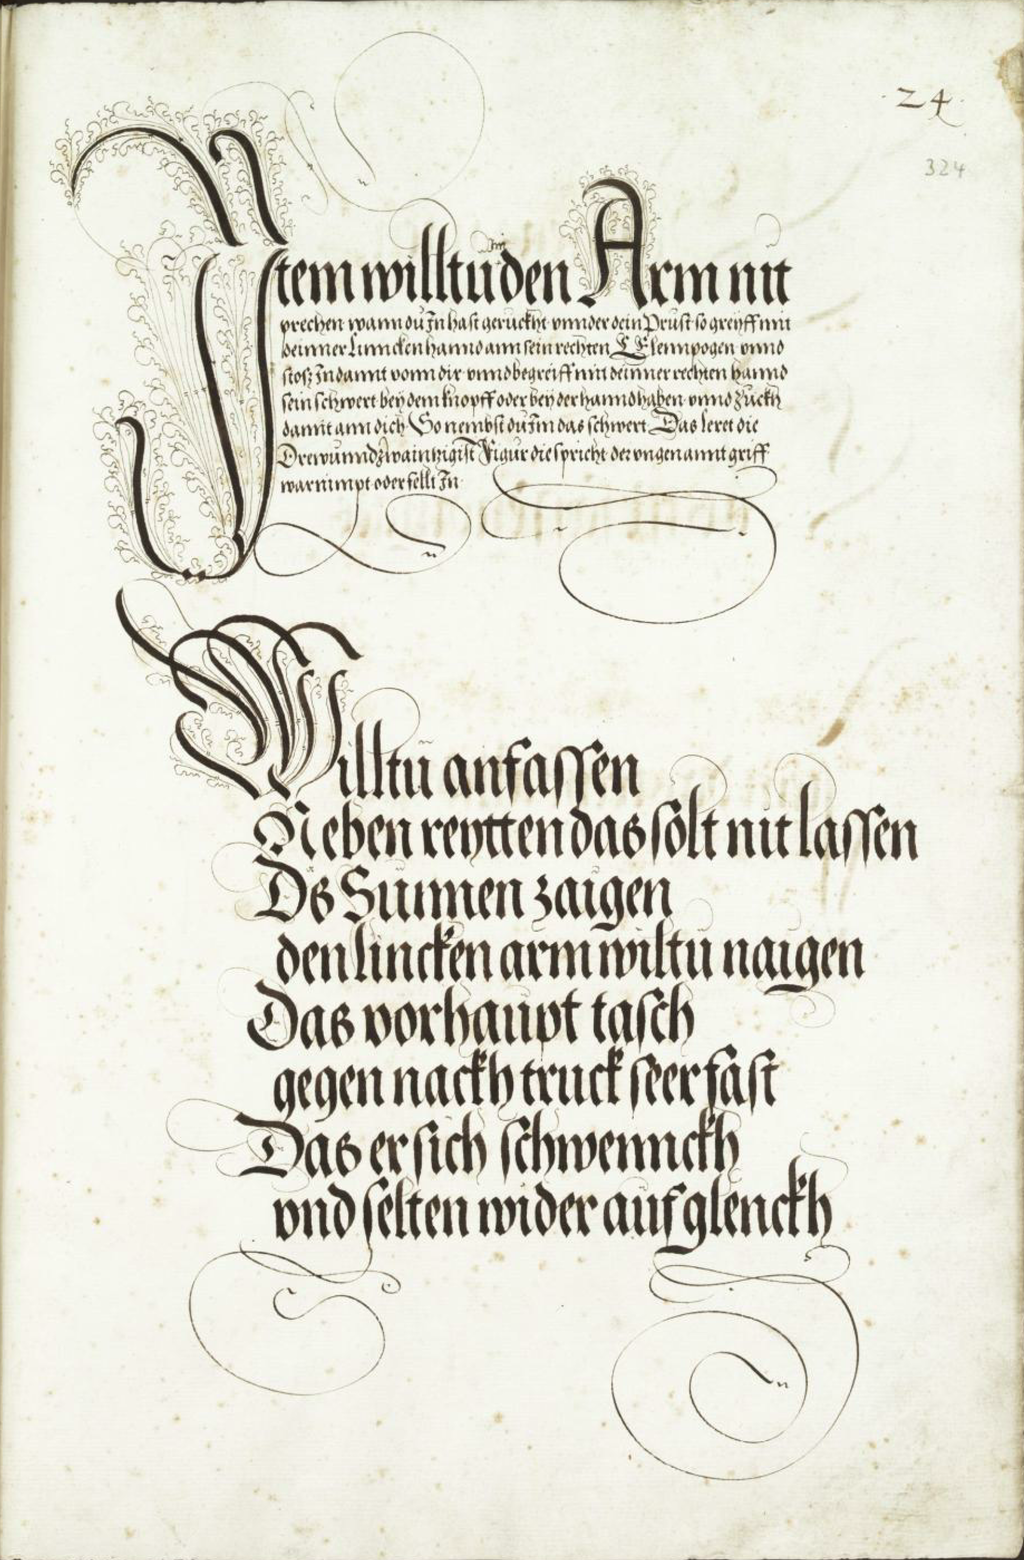 24
324
Item willtu den Arm nit
im
prechen wann du In hast geruckht vnnder dein Prust so greyff mit
deinner Linncken hannd ann sein rechten Elennpogen vnnd
stosz In dannt vonn dir vnnd begreiff mit deinner rechten hannd
sein schwert bey dem knopff oder bey der hanndhaben vnnd zuckh
damit ann dich So nembst du Im das schwert Das leret die
Drew unnd zwaintzigist Figur die spricht der vngenannt griff
war nimpt oder fellt In
Willtu anfassen
Neben reytten das solt nit lassen
Ds Sunnen zaigen
den lincken arm wiltu naigen
Das vorhaupt tasch
gegen nackh truck seer fast
Das er sich schwennckh
vnd selten wider auf glenckh